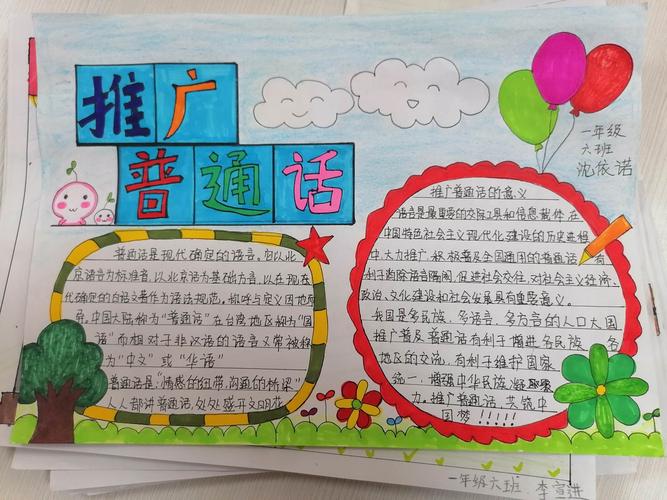 推广
普通话
一年级
六班
沈依诺
普通话是现代确定的语言。它以北
京语音为标准音,以北京话为基础方言,以在现
代确定的白话文著作为语法规范。
中国大陆称为“普通话”在台湾地区称为“国
语”而相对于非汉语的语言又常被称
为“中文”或“华语”
普通话是“情感的纽带,沟通的桥梁”
人人都讲普通话,处处盛开文明花
推广普通话的意义
语言是最重要的交际工具和信息载体,在
中国特色社会主义现代化建设的历史进程
中,大力推广,积极普及全国通用的普通话,有
利于消除语言隔阂,促进社会交往,对社会主义经济、
政治、文化建设和社会发展具有重意义。
我国是多民族、多语言、多方言的人口大国
推广普及普通话有利于增进各民族 各
地区的交流,有利于维护国家
统一,增强中华民族凝聚
力。推广普通话,共筑中
国梦!!!!!
一年级六班 李宣进